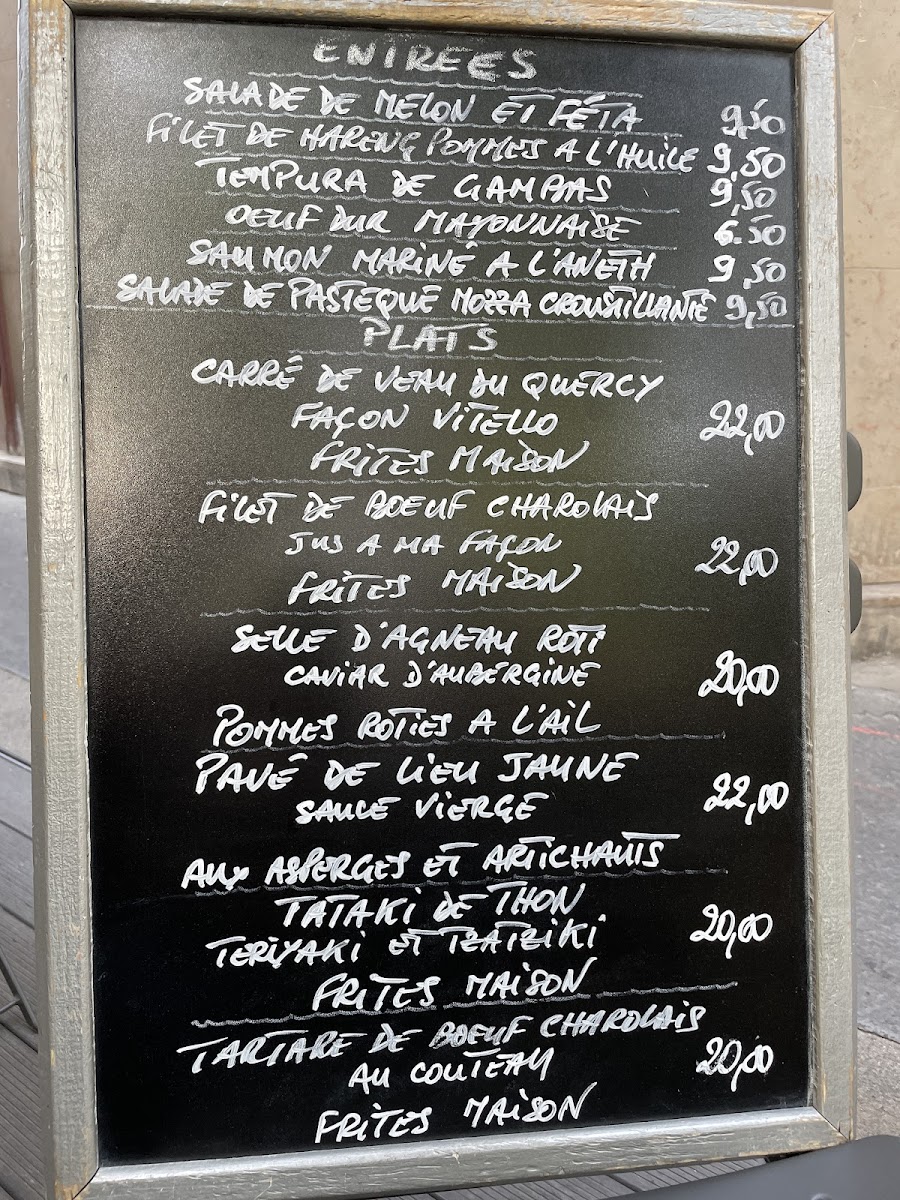 ENTREES
SALADE DE MELON ET FÉTA 9,50
FILET DE HARENG POMMES A L'HUILE 9,50
TEMPURA DE GAMBAS 9,50
OEUF DUR MAYONNAISE 6.50
SAUMON MARINÉ A L'ANETH 9,50
SALADE DE PASTEQUE MOZZA CROUSTILLANTE 9,50
PLATS
CARRÉ DE VEAU DU QUERCY
FAÇON VITELLO 22,00
FRITES MAISON
FILET DE BOEUF CHAROLAIS
JUS A MA FAÇON 22,00
FRITES MAISON
SELLE D'AGNEAU ROTI
CAVIAR D'AUBERGINE 20,00
POMMES ROTIES A L'AIL
PAVÉ DE LIEU JAUNE
SAUCE VIERGE 22,00
AUX ASPERGES ET ARTICHAUTS
TATAKI DE THON
TERIYAKI ET TZATZIKI 20,00
FRITES MAISON
TARTARE DE BOEUF CHAROLAIS
AU COUTEAU 20,00
FRITES MAISON